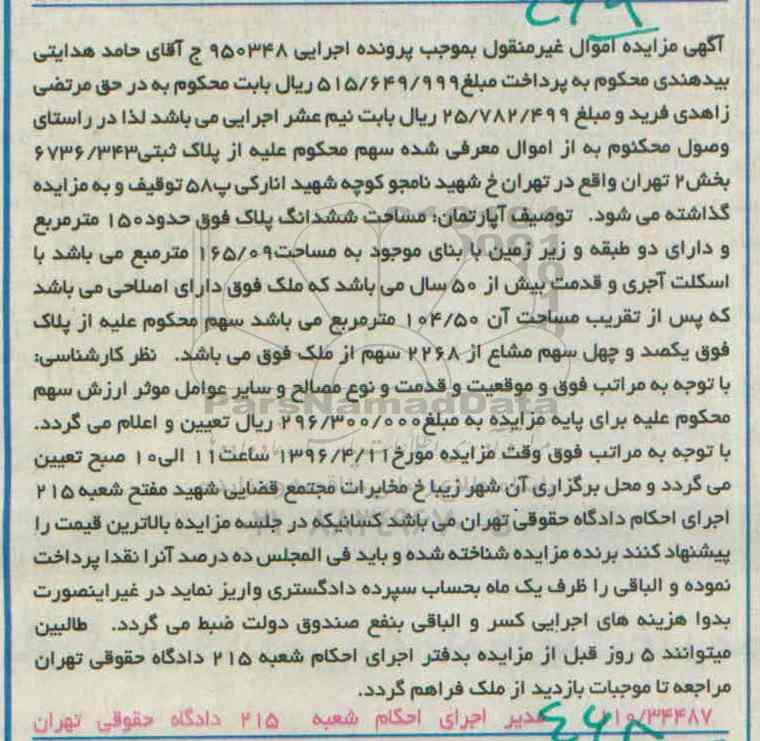 آگهی مزایده اموال غیرمنقول بموجب پرونده اجرایی ۹۵۰۳۴۸ ج آقای حامد هدایتی
بیدهندی محکوم به پرداخت مبلغ۵۱۵/۶۴۹/۹۹۹ ریال بابت محکوم به در حق مرتضی
زاهدی فرید و مبلغ ۲۵/۷۸۲/۴۹۹ ریال بابت نیم عشر اجرایی می باشد لذا در راستای
وصول محکئوم به از اموال معرفی شده سهم محکوم علیه از پلاک ثبتی۶۷۳۶/۳۴۳
بخش۲ تهران واقع در تهران خ شهید نامجو کوچه شهید انارکی پ۵۸ توقیف و به مزایده
گذاشته می شود. توصیف آپارتمان: مساحت ششدانگ پلاک فوق حدود۱۵۰ مترمربع
و دارای دو طبقه و زیر زمین با بنای موجود به مساحت۱۶۵/۰۹ مترمبع می باشد با
اسکلت آجری و قدمت بیش از ۵۰ سال می باشد که ملک فوق دارای اصلاحی می باشد
که پس از تقریب مساحت آن ۱۰۴/۵۰ مترمربع می باشد سهم محکوم علیه از پلاک
فوق یکصد و چهل سهم مشاع از ۲۲۶۸ سهم از ملک فوق می باشد. نظر کارشناسی:
با توجه به مراتب فوق و موقعیت و قدمت و نوع مصالح و سایر عوامل موثر ارزش سهم
محکوم علیه برای پایه مزایده به مبلغ۲۹۶/۳۰۰/۰۰۰ ریال تعیین و اعلام می گردد.
با توجه به مراتب فوق وقت مزایده مورخ۱۳۹۶/۴/۱۱ ساعت۱۱ الی۱۰ صبح تعیین
می گردد و محل برگزاری آن شهر زیبا خ مخابرات مجتمع قضایی شهید مفتح شعبه ۲۱۵
اجرای احکام دادگاه حقوقی تهران می باشد کسانیکه در جلسه مزایده بالاترین قیمت را
پیشنهاد کنند برنده مزایده شناخته شده و باید فی المجلس ده درصد آنرا نقدا پرداخت
نموده و الباقی را ظرف یک ماه بحساب سپرده دادگستری واریز نماید در غیراینصورت
بدوا هزینه های اجرایی کسر و الباقی بنفع صندوق دولت ضبط می گردد. طالبین
میتوانند ۵ روز قبل از مزایده بدفتر اجرای احکام شعبه ۲۱۵ دادگاه حقوقی تهران
مراجعه تا موجبات بازدید از ملک فراهم گردد.
۲۱۰/۳۴۴۸۷ مدیر اجرای احکام شعبه ۲۱۵ دادگاه حقوقی تهران
ParsNamadData